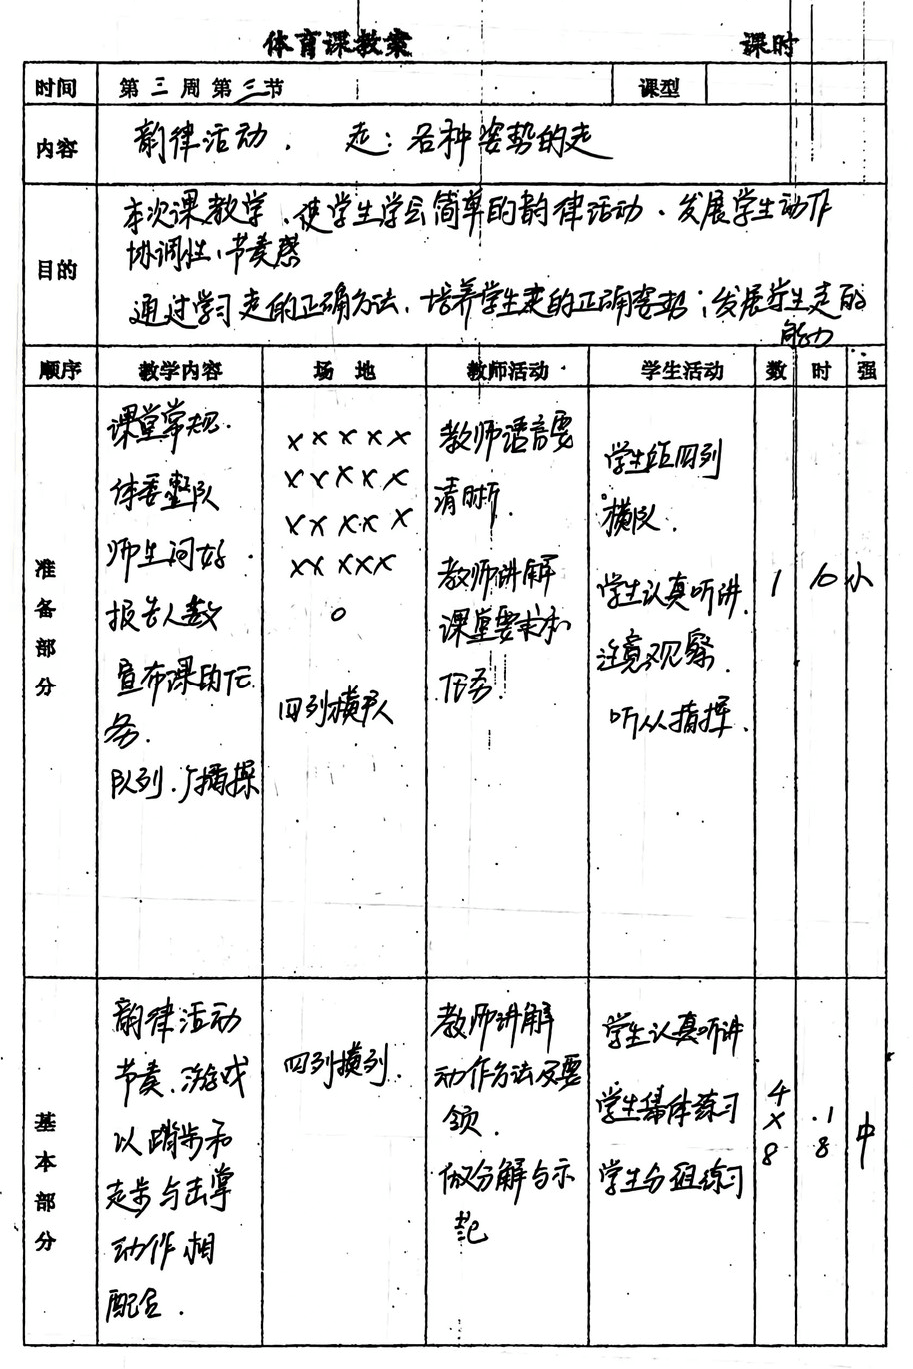 体育课教案 课时
时间 第三周第三节 课型
内容 韵律活动. 走:各种姿势的走
目的
本次课教学、使学生学会简单的韵律活动.发展学生动作
协调性、节奏感
通过学习走的正确方法、培养学生走的正确姿势;发展学生走的
能力
顺序 教学内容 场地 教师活动 学生活动 数 时 强
准备部分
课堂常规.
体委整队
师生问好.
报告人数
宣布课的任
务.
队列.广播操
×××××
×××××
×××××
×××××
○
四列横队
教师语言要
清晰.
教师讲解
课堂要求和
任务.
学生站四列
横队.
学生认真听讲.
注意观察.
听从指挥.
1 10 小
基本部分
韵律活动
节奏.游戏
以踏步和
走步与击掌
动作相
配合.
四列横列.
教师讲解
动作方法及要
领.
做分解与示
范
学生认真听讲
学生集体练习
学生分组练习
4×8 18 中